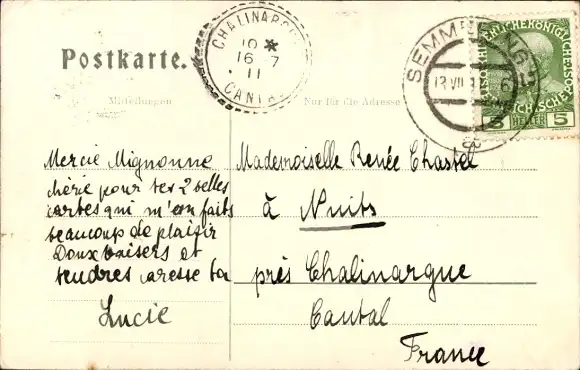 Postkarte.
CHALINARGUE
10 *
16 - 7
11
CANTAL
SEMMERING
13 VII
5 HELLER 5
Mitteilungen
Nur für die Adresse
Mercie Mignonne
chérie pour tes 2 belles
cartes qui m'on faits
beaucoup de plaisir
Doux baisers et
tendres caresse ta
Lucie
Mademoiselle Renée Chastel
à Nuits
près Chalinargue
Cantal
France